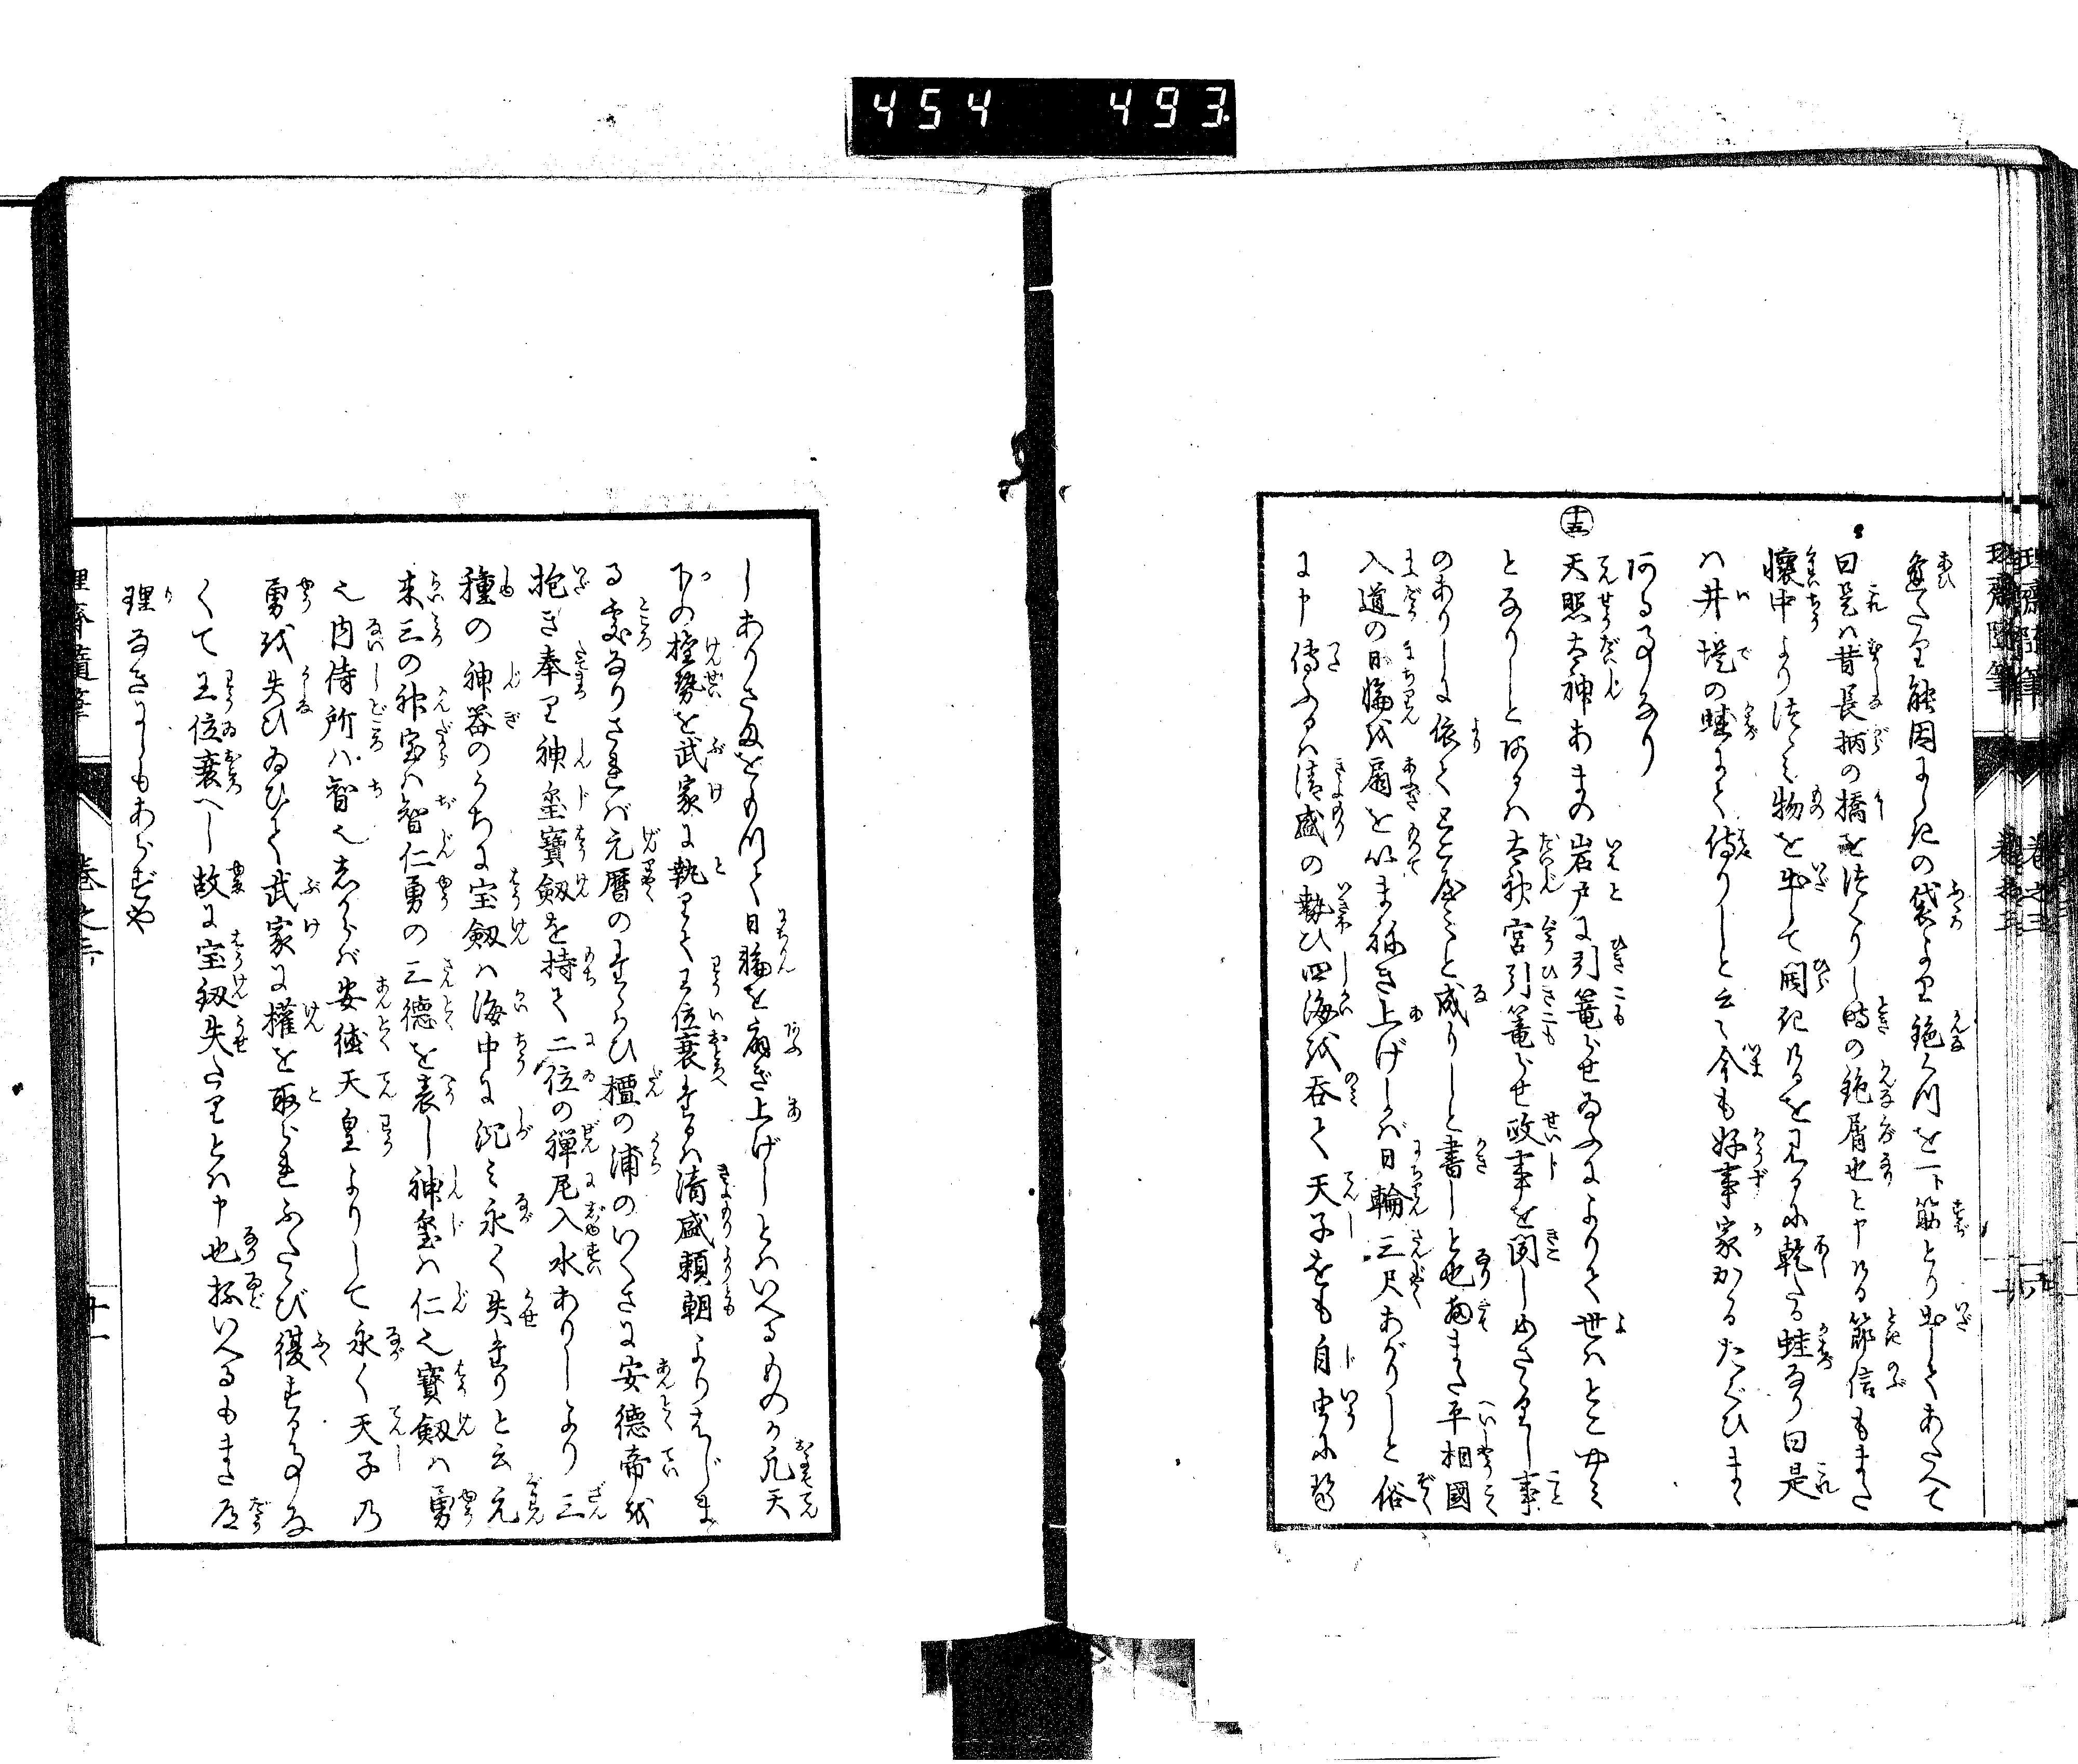 454 493
理齋隨筆 巻之三
逢たり能因よ〱昵の袋より鉋くづを一筋とり出してあたへて
曰是は昔長柄の橋を造りし時の鉋屑也と申ける節信もまた
懐中より紙に包し物を出して開けるを見るに乾たる蛙なり曰是
は井堤の蛙にて侍りしと云て今も好事家かゝるたぐひまゝ
ある事なり
十五 天照太神あまの岩戸に引篭らせ給ふによりて世はとこやみ
となりしとあるは太神宮引篭らせ政事を聞しめさゞりし事
のありしに依て常闇と成りしと書しと也扨また平相國
入道の日輪を扇を以まねき上げしかば日輪三尺あがりしと俗
に申傳ふるは清盛の勢ひ四海を呑て天子をも自由に
しありさまをもつて日輪を扇ぎ上げしとはいへるものか凡天
下の權勢を武家に執りて王位衰たるは清盛頼朝よりはじま
る處なりされば元暦のたゝかひ檀の浦のいくさに安徳帝を
抱き奉り神璽寳劔を持て二位の禅尼入水ありしより三
種の神器のうちに宝劔は海中に沉み永く失たりと云元
来三の神宝は智仁勇の三徳を表し神璽は仁也寳劔は勇
也内侍所は智也しからば安徳天皇よりして永く天子乃
勇を失ひ給ひて武家に權を取られふたゝび復する事な
くて王位衰へし故に宝劔失たりとは申也抔いへるもまた道
理なきにしもあらずや
理齋隨筆 巻之三 十一